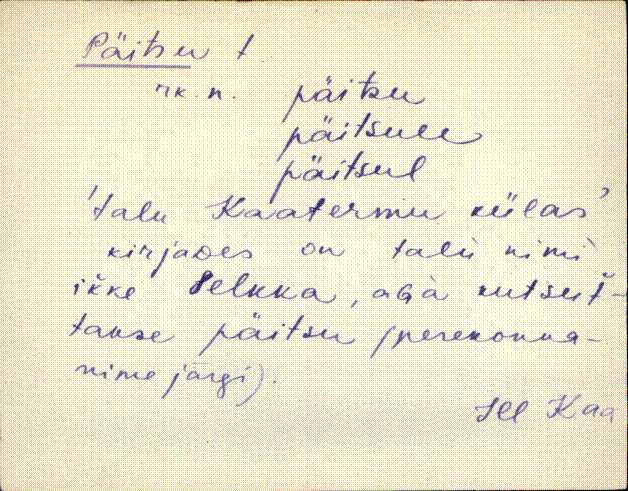 Päitsu t
rk. n. päitsu
päitsule
päitsul
'talu Kaatermu külas'
kirjades on talu nimi
ikke Pelkka, aga kutsut-
takse päitsu (perekonna-
nime järgi).
Jll Kaa